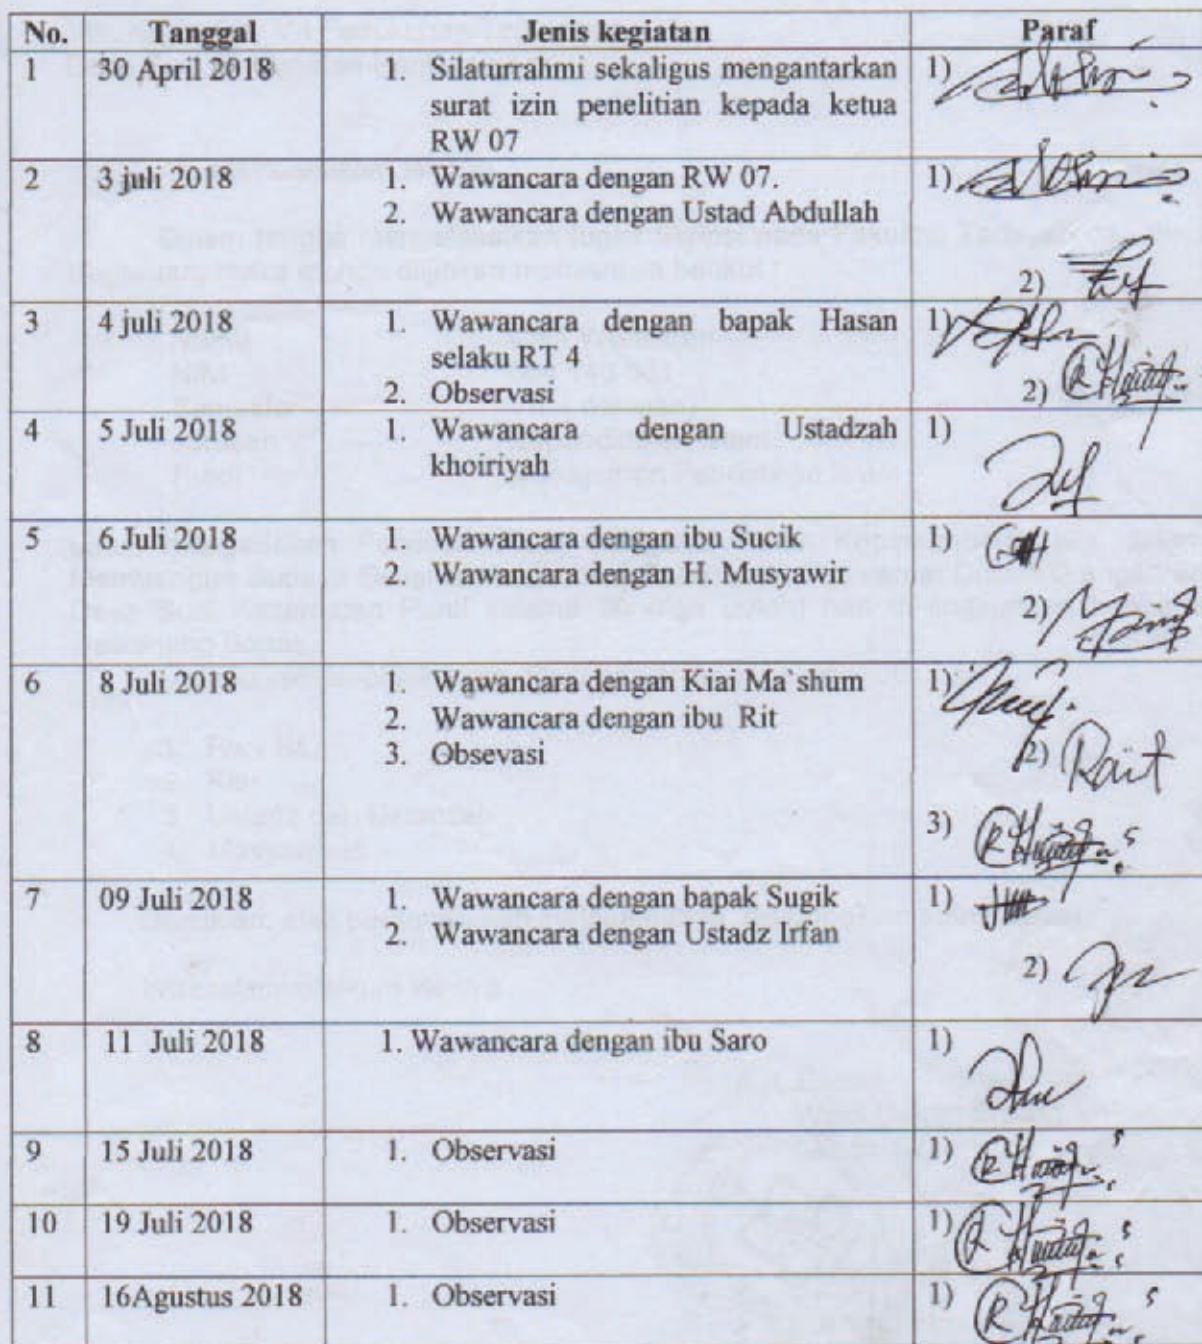 No. Tanggal Jenis kegiatan Paraf
1 30 April 2018 1. Silaturrahmi sekaligus mengantarkan 1)
surat izin penelitian kepada ketua
RW 07
2 3 juli 2018 1. Wawancara dengan RW 07. 1)
2. Wawancara dengan Ustad Abdullah
2)
3 4 juli 2018 1. Wawancara dengan bapak Hasan 1)
selaku RT 4
2. Observasi 2)
4 5 Juli 2018 1. Wawancara dengan Ustadzah 1)
khoiriyah
5 6 Juli 2018 1. Wawancara dengan ibu Sucik 1)
2. Wawancara dengan H. Musyawir
2)
6 8 Juli 2018 1. Wawancara dengan Kiai Ma`shum 1)
2. Wawancara dengan ibu Rit
3. Obsevasi 2) Rait
3)
7 09 Juli 2018 1. Wawancara dengan bapak Sugik 1)
2. Wawancara dengan Ustadz Irfan
2)
8 11 Juli 2018 1. Wawancara dengan ibu Saro 1)
9 15 Juli 2018 1. Observasi 1)
10 19 Juli 2018 1. Observasi 1)
11 16Agustus 2018 1. Observasi 1)